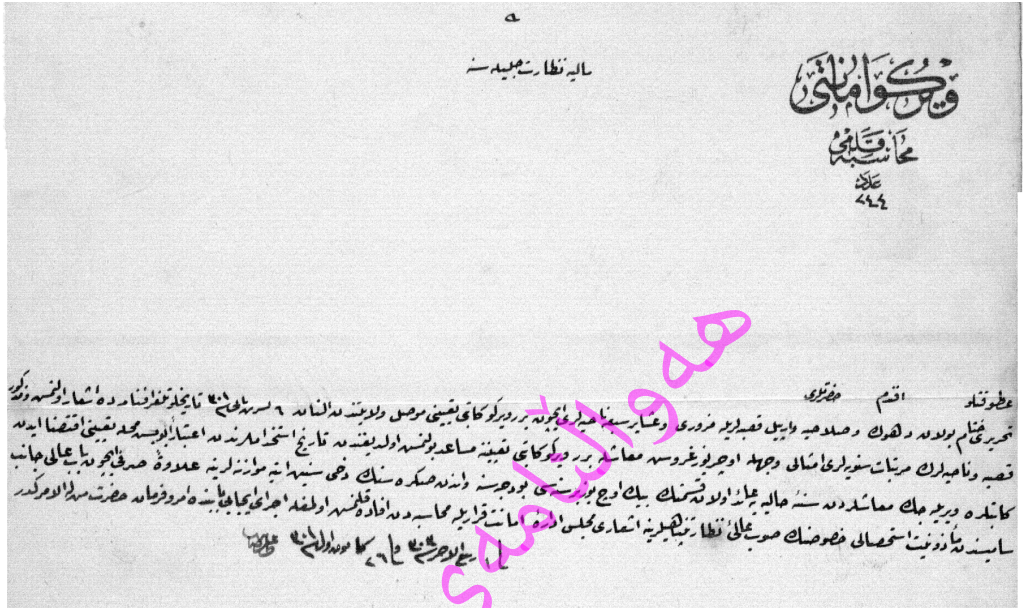 ٩
ماليه نظارت جليله سنه
ويركو امانتى
محاسبه قلمى
عدد
٢٤٤
عطوفتلو افندم حضرتلرى
تحريرى ختام بولان دهوك و صلاحيه و اربيل قصبه لريله مزورى و عشاير سبعه ناحيه لرى ايچون برر ويركو كاتبى تعيينى موصل ولايتندن النان ٦ تشرين ثانى ٣٠١ تاريخلو تلغرافنامه ده اشعار اولنمش و مذكور
قصبه و ناحيه لرك مرتبات سنويه لرى امثالى وجهله اوچر يوز غروش معاشله برر ويركو كاتبى تعيينه مساعد بولنمش اولديغندن تاريخ استخداملرندن اعتباراً اولبابده محلجه تعيينى اقتضا ايدن
كاتبلره ويريله جك معاشلردن سنه حاليه يه عائد اولان قسمنك بيك اوچ يوز بر سنه سى بودجه سنه و اندن صكره سنك دخى سنين اتيه موازنه لرينه علاوةً صرفى ايچون باب عالى جانب
ساميسندن مأذونيت استحصالى خصوصنك صوب عالئ نظارتپناهيلرينه اشعارى مجلس اداره امانت قراريله محاسبه دن افاده قلنمش اولمغله اجراى ايجابى بابنده امر و فرمان حضرت من له الامركدر
فى ١ ربيع الاخر سنه ٣٠٣ و فى ٢٦ كانون اول سنه ٣٠١
هەواڵنامەی